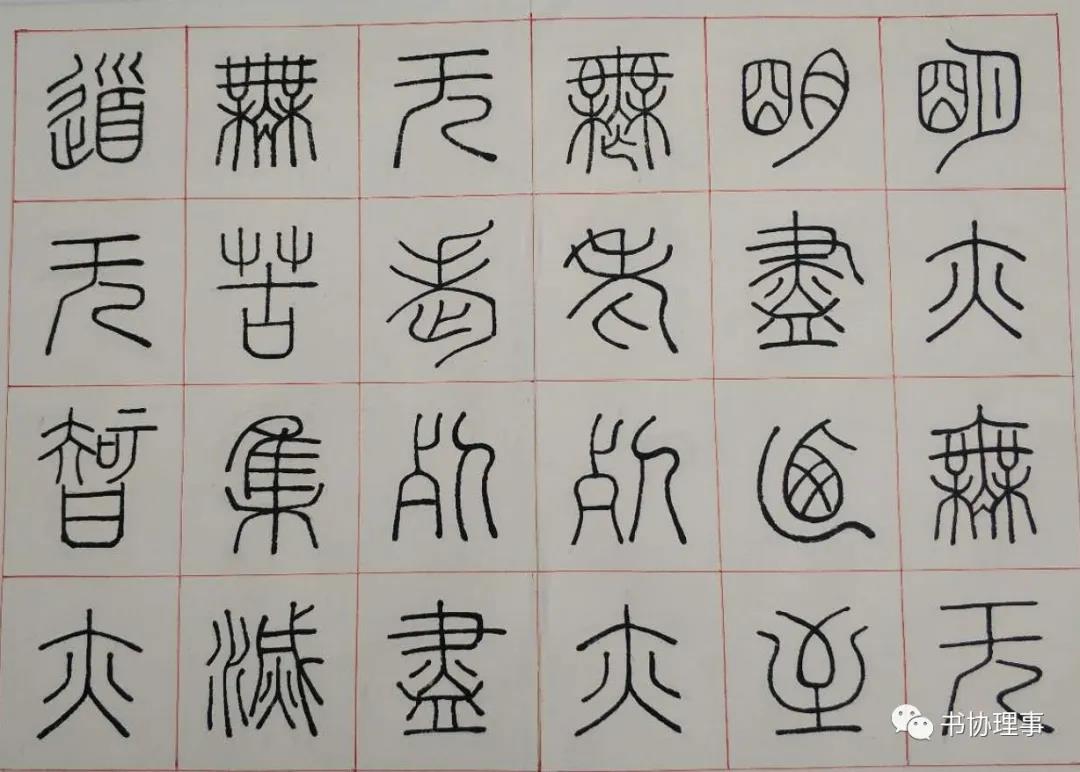 明亦無无
明盡迺至
無老死亦
无老死盡
無苦集滅
道无智亦
书协理事